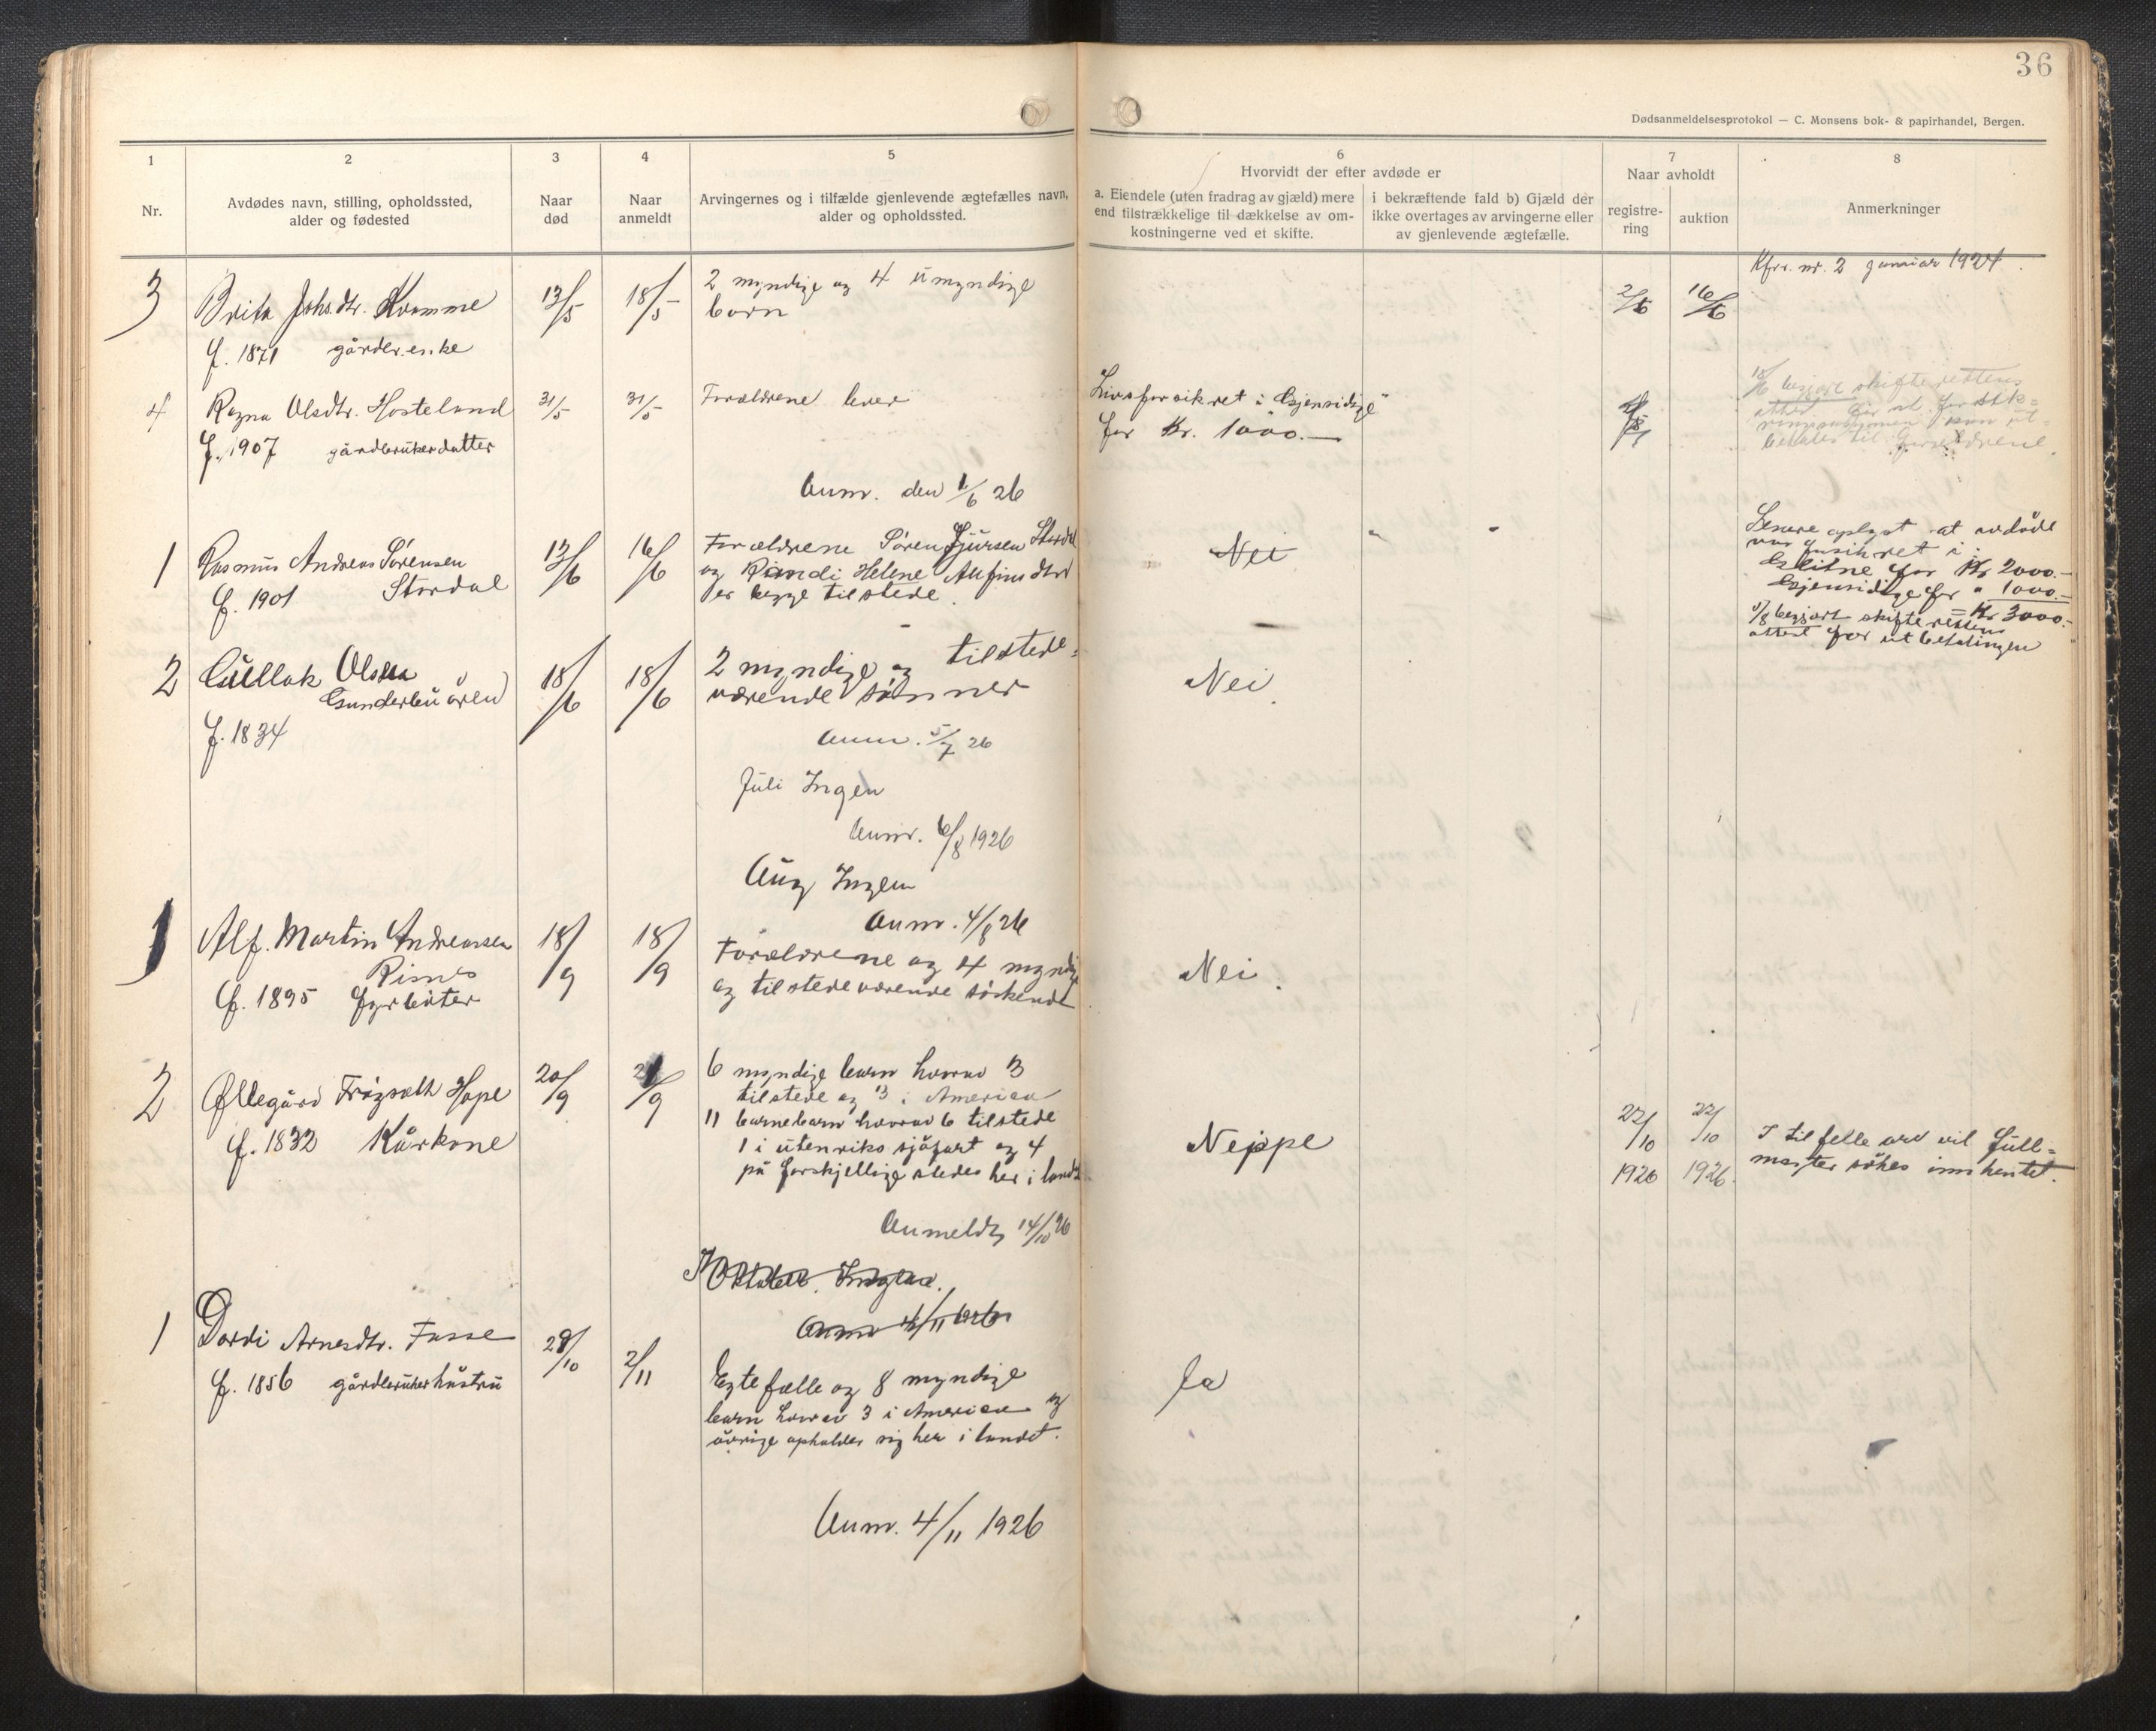 36
Dødsanmeldelsesprotokol — C. Monsens bok- & papirhandel, Bergen.
1
Nr.
2
Avdødes navn, stilling, opholdssted,
alder og fødested
3
Naar
død
4
Naar
anmeldt
5
Arvingernes og i tilfælde gjenlevende ægtefælles navn,
alder og opholdssted.
6
Hvorvidt der efter avdøde er
a. Eiendele (uten fradrag av gjæld) mere
end tilstrækkelige til dækkelse av om-
kostningerne ved et skifte.
i bekræftende fald b) Gjæld der
ikke overtages av arvingerne eller
av gjenlevende ægtefælle.
7
Naar avholdt
registre-
ring
auktion
8
Anmerkninger
3
Brita Johs.dtr. Kvamme
f. 1871 gårdbr.enke
13/5
18/5
2 myndige og 4 umyndige
born
2/6
16/6
Kfr. nr. 2 januar 1924.
4
Ragna Olsdtr. Hosteland
f. 1907 gårdbrukerdatter
31/5
31/5
Forældrene lever
Livsforsikret i "Gjensidige"
for Kr. 1000.—
begjært skifterettens
attest for at forsik=
ringssummen kan ut=
betales til forældrene.
Anm. den 1/6 26
1
Rasmus Andreas Sørensen
Stordal
f. 1901
13/6
16/6
Forældrene Søren Sjursen Stordal
og Randi Helene Alfinsdtr
er begge tilstede.
Nei
Senere oplyst at avdøde
var forsikret i:
Glitne for Kr 2000.—
Gjensidige for " 1000.—
= Kr 3000.—
5/8 begjært skifterettens
attest for utbetalingen
2
Gullak Olsen
Gunderbuøren
f. 1834
18/6
18/6
2 myndige og tilstede=
værende sønner
Nei.
Anm. 5/7 26
Juli Ingen
Anm. 6/8 1926
Aug Ingen
Anm. 4/8 26
1
Alf. Martin Andreassen
Risnes
f. 1895 fyrbøter
18/9
18/9
Forældrene og 4 myndige
og tilstedeværende søskende
Nei.
2
Øllegård Frøysadt Hope
f. 1832 Kårkone
20/9
21/9
6 myndige barn hvorav 3
tilstede og 3 i America
11 barnebarn hvorav 6 tilstede
1 i utenriks sjøfart og 4
på forskjellige steder her i landet
Neppe
22/10
1926
22/10
1926.
I tilfelle arv vil full=
magter søkes innhentet.
Anmeldt 14/10 26
Oktober. Ingen.
Anm 4/11 1926
1
Dordi Arnesdtr. Fasse
f. 1856 gårdbrukerhustru
29/10
2/11
Egtefælle og 8 myndige
barn hvorav 3 i America og
øvrige opholder sig her i landet.
Ja
Anm. 4/11 1926